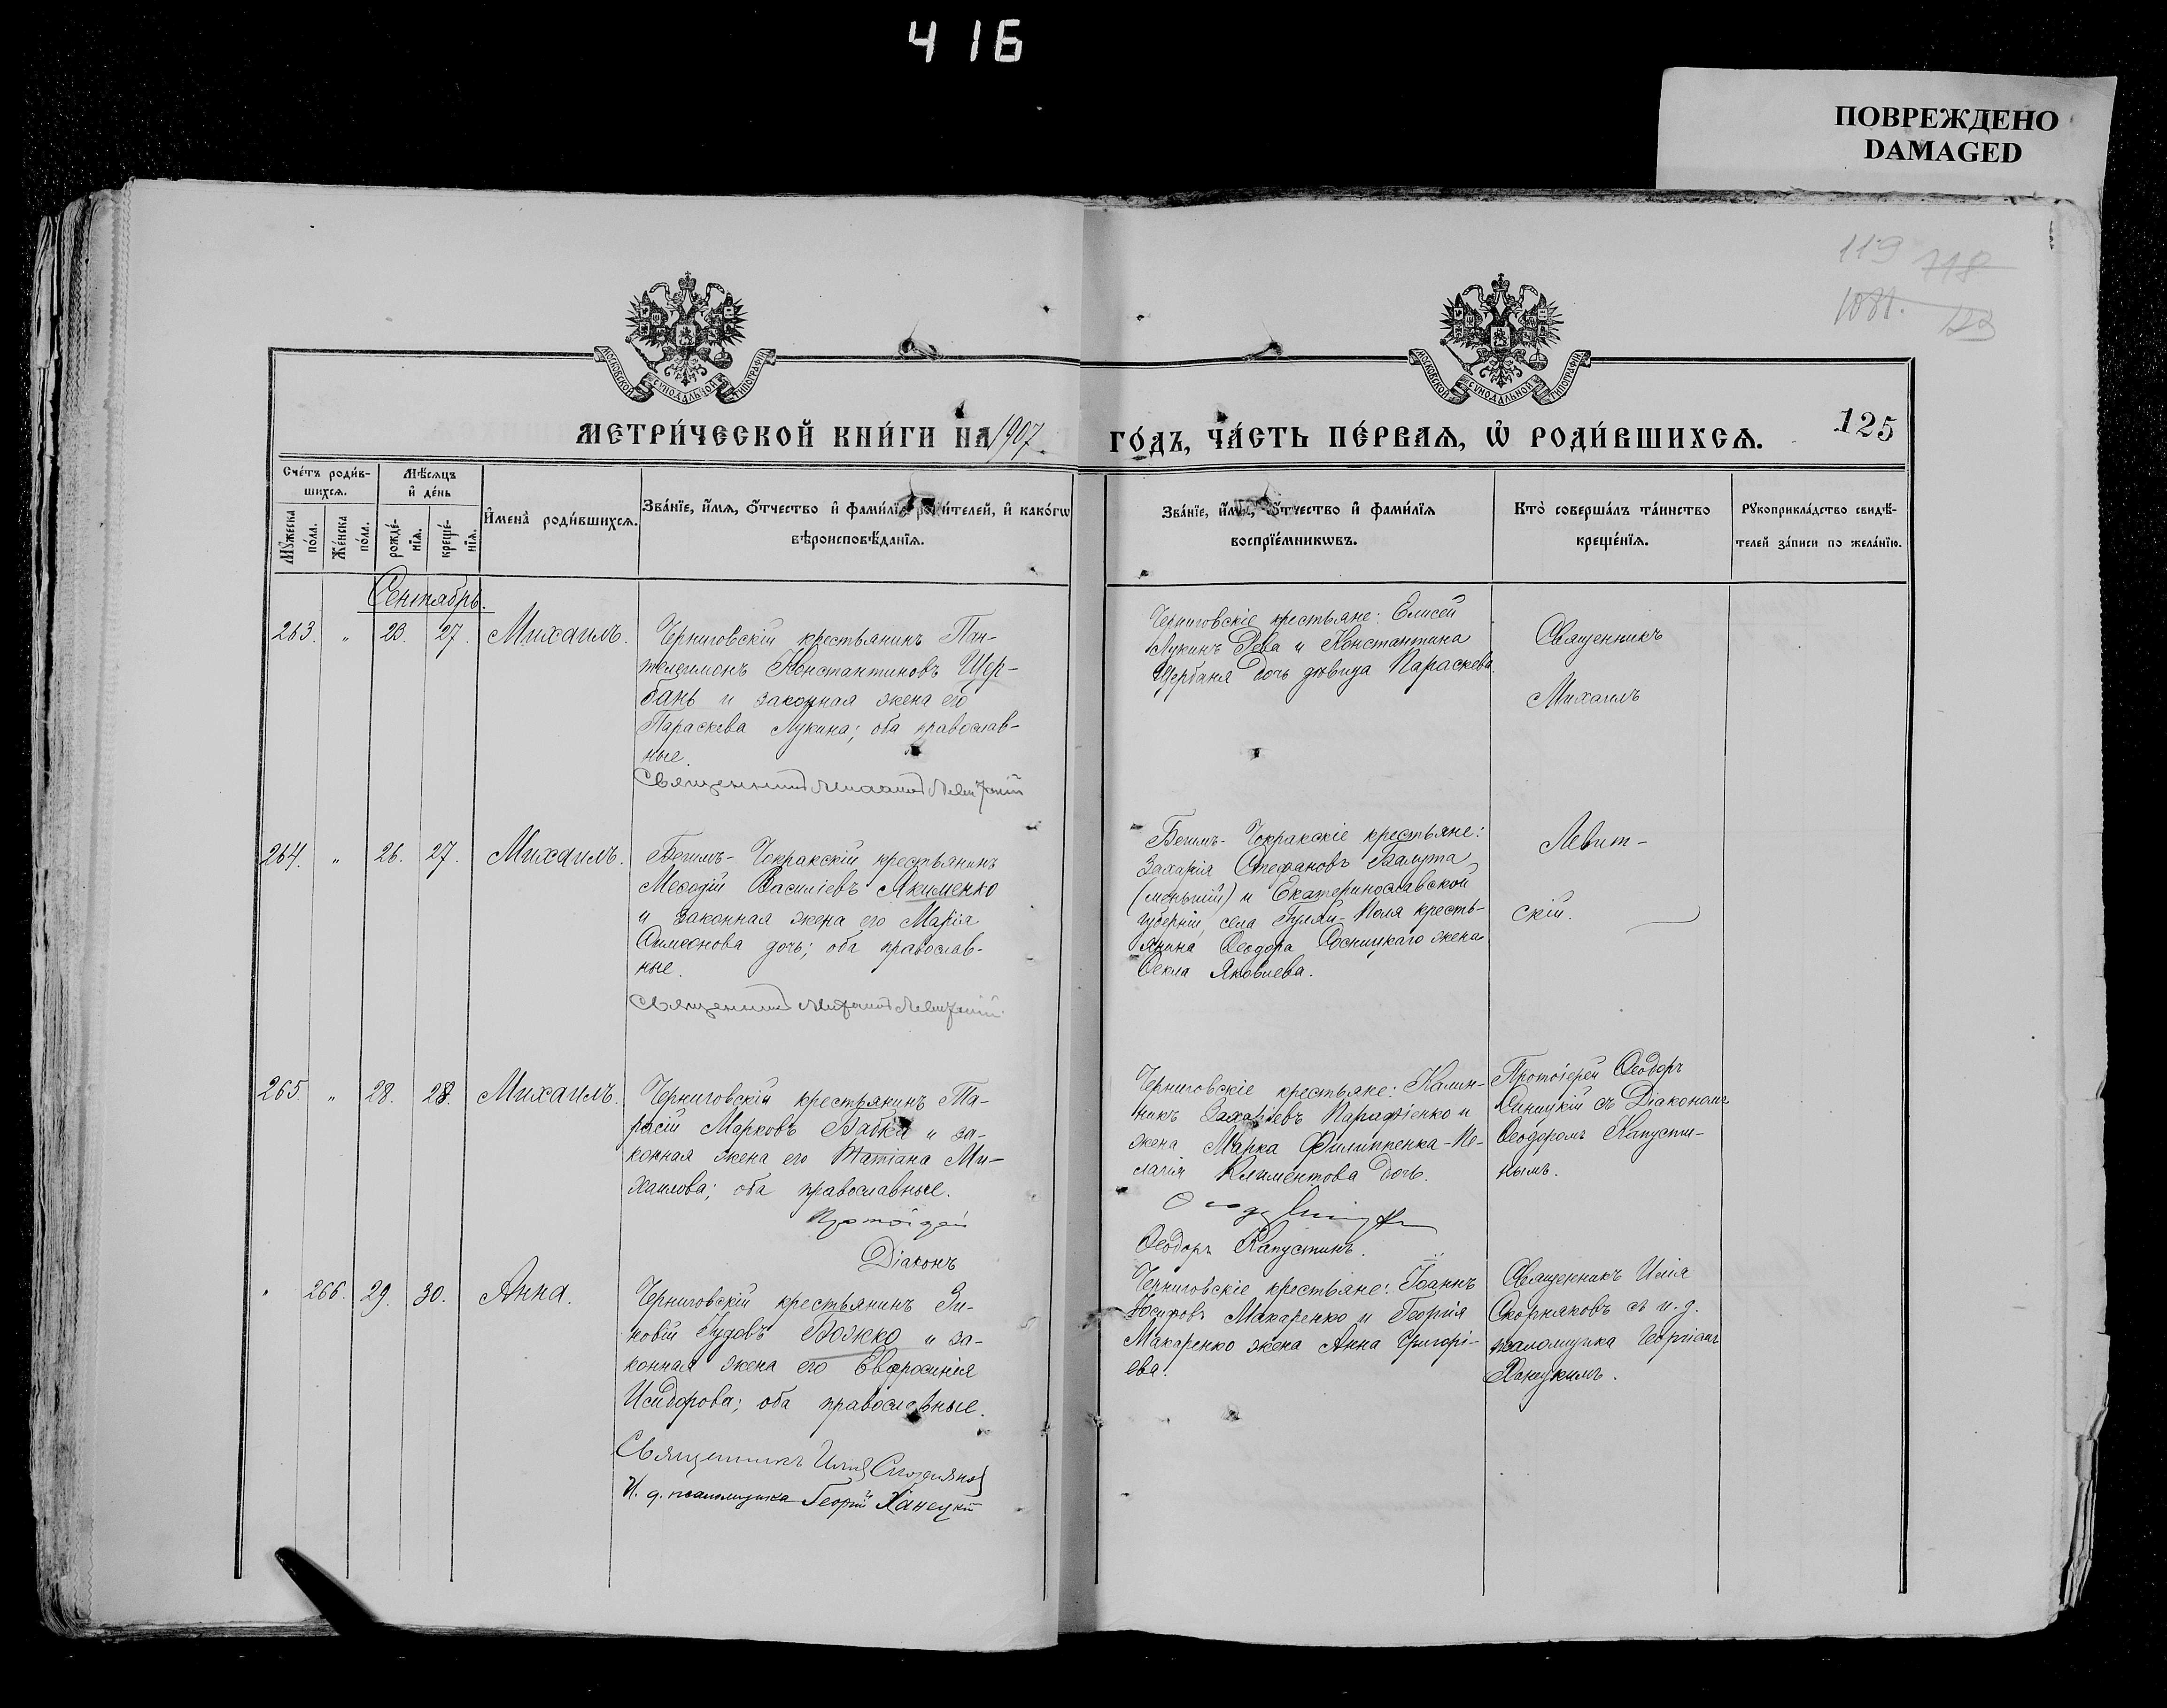 416
ПОВРЕЖДЕНО
DAMAGED
119 118
123
МОСКОВСКОЙ СѴНОДАЛЬНОЙ ТИПОГРАФІИ
МОСКОВСКОЙ СѴНОДАЛЬНОЙ ТИПОГРАФІИ
МЕТРИ́ЧЕСКОЙ КНИ́ГИ НА 1907.
ГО́ДЪ, ЧА́СТЬ ПЕ́РВАЯ, Ѿ РОДИ́ВШИХСЯ.
125
Сче́тъ роди́в-
шихся.
Мѣ́сяцъ
и҆ де́нь
Мꙋ́жеска
по́ла.
Же́нска
по́ла.
рожде́-
нїя.
креще́-
нїя.
И҆мена̀ роди́вшихся.
Зва́нїе, и҆́мя, ѻ҆́тчество и҆ фами́лїя роди́телей, и҆ како́гѡ
вѣроисповѣ́данїя.
Зва́нїе, и҆́мя, ѻ҆́тчество и҆ фами́лїя
воспрїе́мникѡвъ.
Кто̀ соверша́лъ та́инство
креще́нїя.
Рꙋкоприкла́дство свидѣ́-
телей за́писи по жела́нїю.
Сентябрь.
263. „ 23. 27. Михаилъ.
Черниговскій крестьянинъ Пан-
телеимонъ Константиновъ Щер-
бань и законная жена его
Параскева Лукина; оба православ-
ные.
Священникъ Михаилъ Левитскій
Черниговскіе крестьяне: Елисей
Лукинъ Рева и Константина
Щербаня дочь дѣвица Параскева.
Священникъ
Михаилъ
264. „ 26. 27. Михаилъ.
Бегимъ-Чокракскій крестьянинъ
Меѳодій Василіевъ Якименко
и законная жена его Марія
Симеонова дочь; оба православ-
ные.
Священникъ Михаилъ Левитскій
Бегимъ-Чокракскіе крестьяне:
Захарія Стефановъ
(меньшій) и Екатеринославской
губерніи, села Гуляй-Поля кресть-
янина Ѳеодора Сосницкаго жена
Ѳекла Яковлева.
Левит-
скій.
265. „ 28. 28. Михаилъ.
Черниговскій крестьянинъ Та-
расій Марковъ Бабка и за-
конная жена его Татіана Ми-
хаилова; оба православные.
Протоіерей
Діаконъ
Черниговскіе крестьяне: Калин-
никъ Захаріевъ Парафіенко и
жена Марка Филиппенка-Пе-
лагія Климентова дочь.
Ѳеодоръ Капустинъ.
Протоіерей Ѳеодоръ
Синицкій съ Діакономъ
Ѳеодоромъ Капусти-
нымъ.
„ 266. 29. 30. Анна.
Черниговскій крестьянинъ Зи-
новій Гудовъ Божко и за-
конная жена его Евфросинія
Исидорова; оба православные.
Священникъ Илія Скорняковъ
И. д. псаломщика Георгій Ханецкій
Черниговскіе крестьяне: Іоаннъ
Іосифовъ Макаренко и Георгія
Макаренко жена Анна Григорі-
ева.
Священникъ Илія
Скорняковъ съ и. д.
псаломщика Георгіемъ
Ханецкимъ.